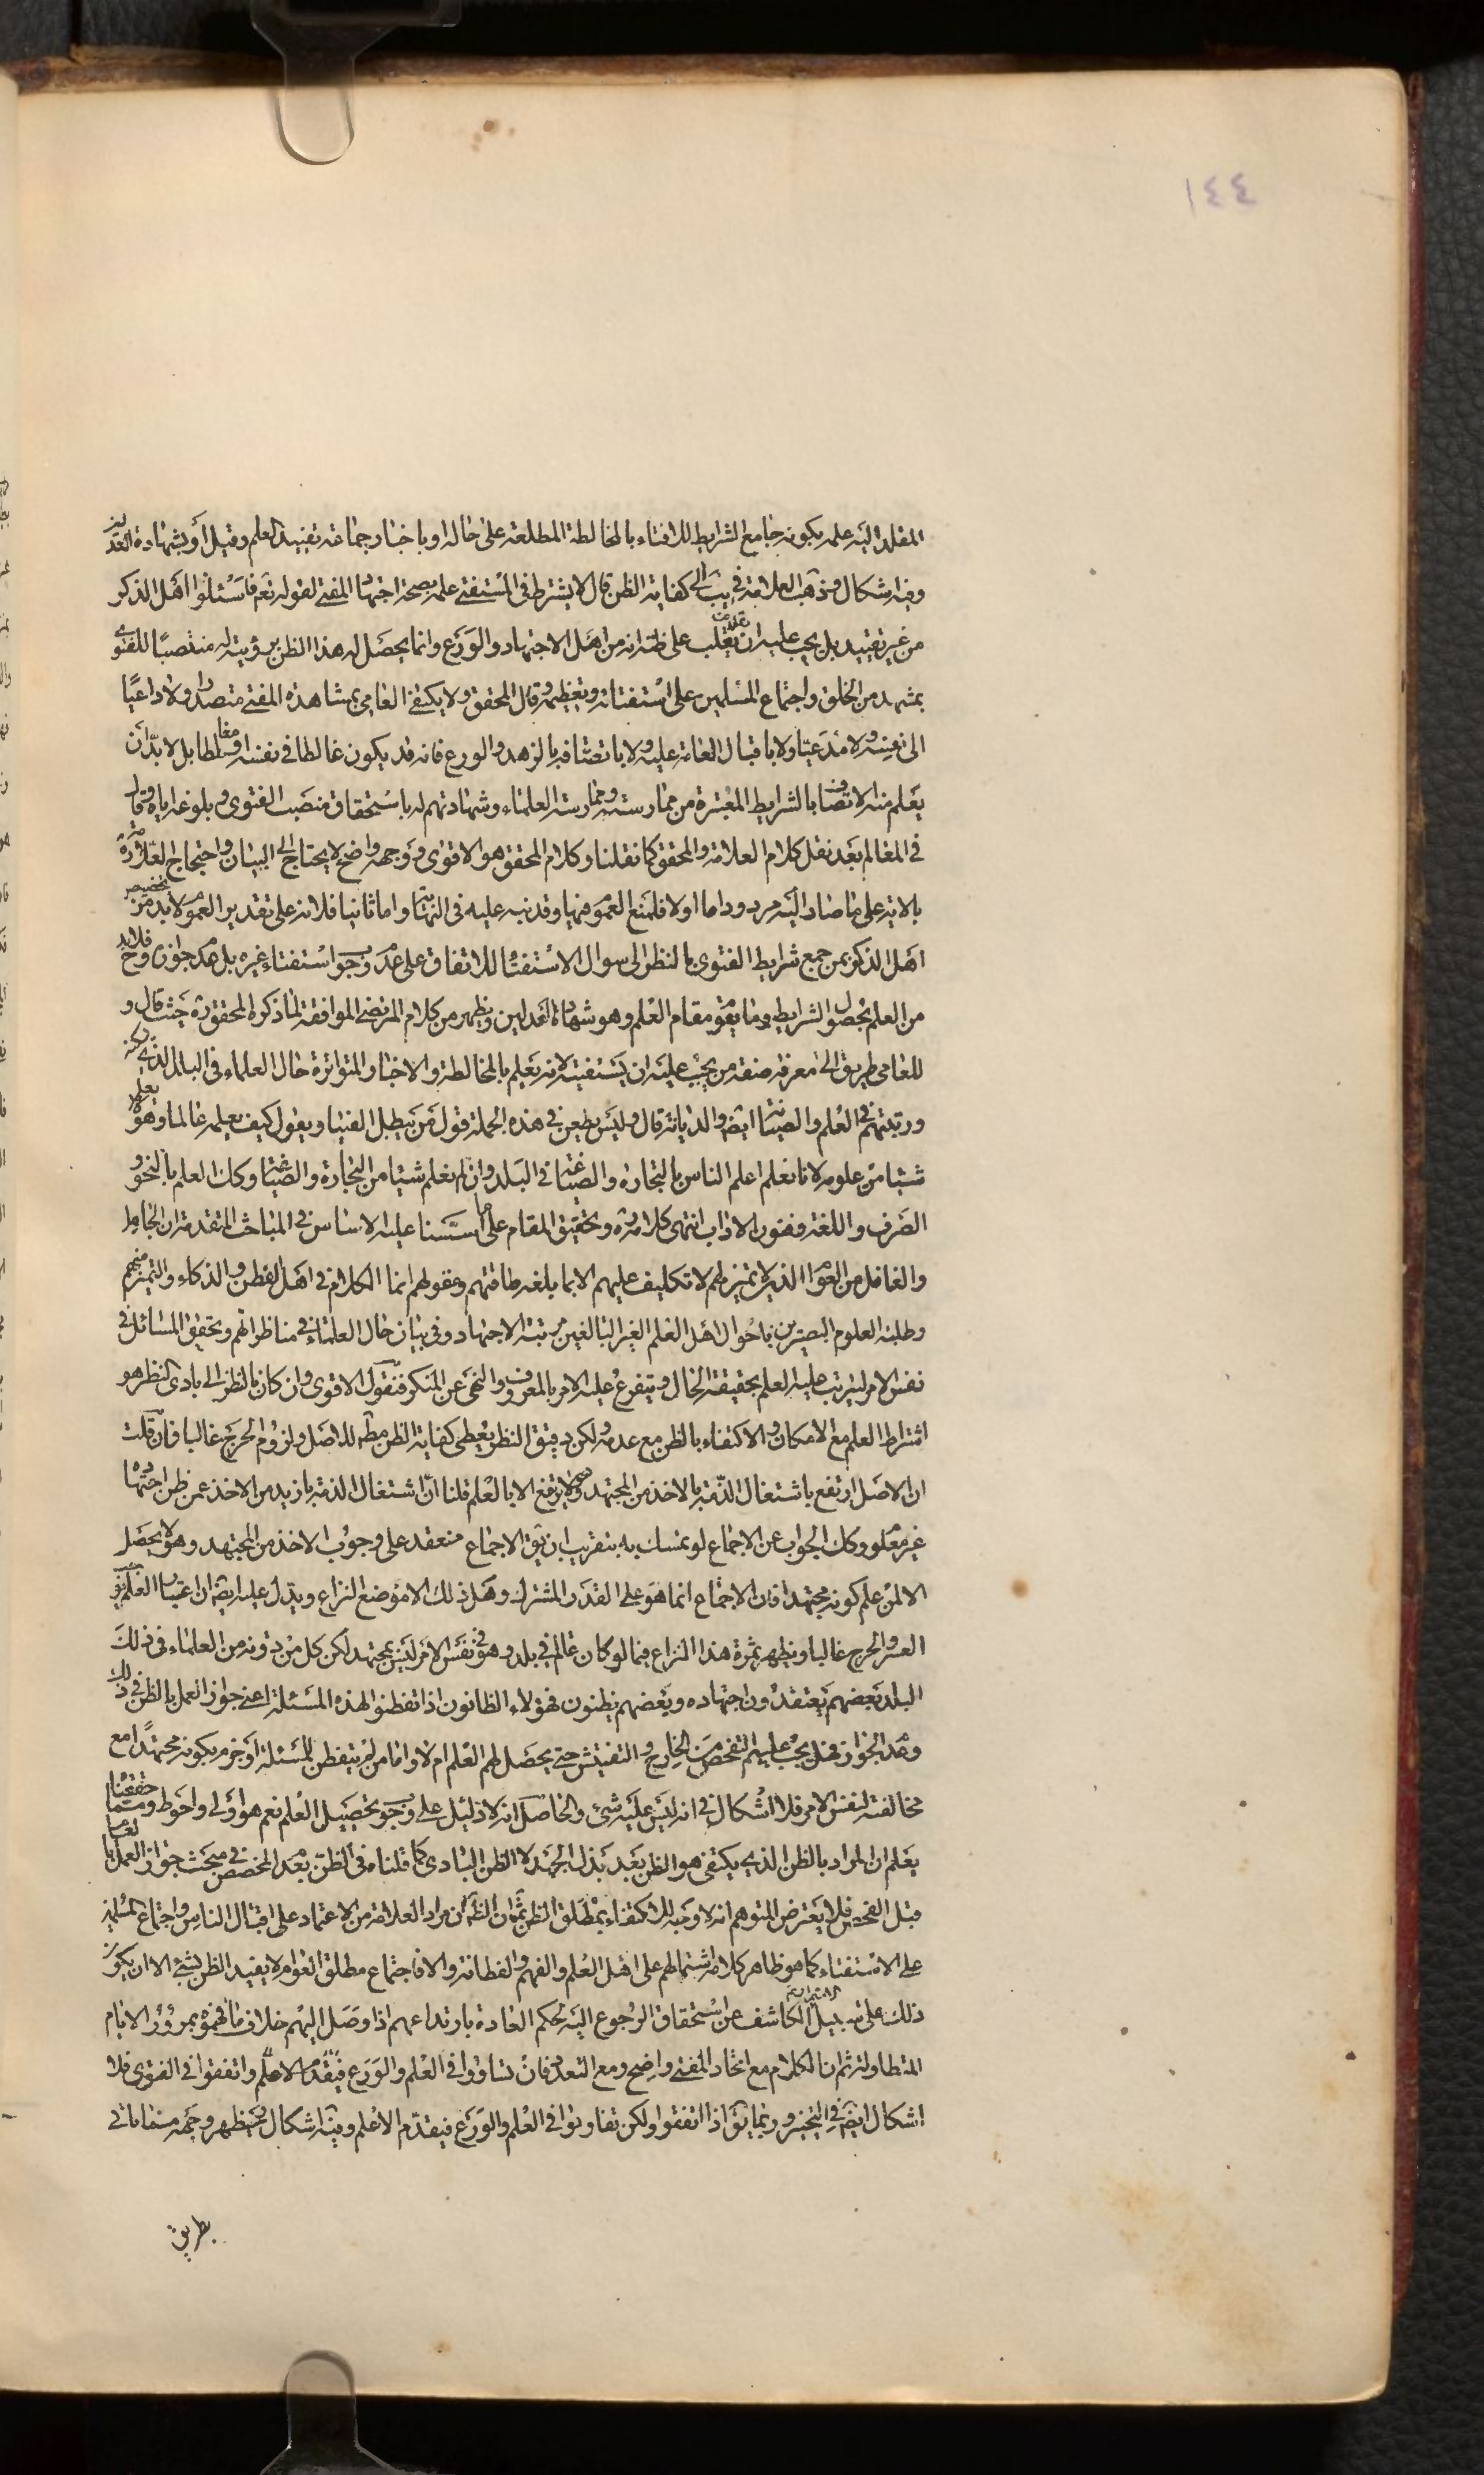 ١٤٤
المقلد اليه علمه بكونه جامع الشرايط للافتاء بالمخالطة المطلعة على حاله او باخبار جماعة تفيد العلم وقيل او بشهادة العدلين
وفيه اشكال وذهب العلامة في يب الى كفاية الظن قال لا يشترط في المستفتي علمه بصحة اجتهاد المفتي لقوله تعم فاسئلوا اهل الذكر
من غير تقييد بل يجب عليه ان يغلب على ظنه انه من اهل الاجتهاد والورع وانما يحصل له هذا الظن برؤيته له منتصبا للفتوى
بمشهد من الخلق واجتماع المسلمين على استفتائه وتعظيمه وقال المحقق ولا يكتفى العامي بمشاهدة المفتي متصدرا ولا داعيا
الى نفسه ولا مدعيا ولا باقبال العامة عليه ولا باتصافه بالزهد والورع فانه قد يكون غالطا في نفسه او مغالطا بل لا بد ان
يعلم منه الاتصاف بالشرايط المعتبرة من ممارسته وممارسة العلماء وشهادتهم له باستحقاق منصب الفتوى وبلوغه اياه وقال
في المعالم بعد نقل كلام العلامة والمحقق كما نقلنا وكلام المحقق هو الاقوى ووجهه واضح لا يحتاج الى البيان واحتجاج العلامة ره
بالاية على ما صار اليه مردود اما اولا فلمنع العموم فيها وقد نبه عليه في النهاية واما ثانيا فلانه على تقدير العموم لا بد من تخصيص
اهل الذكر بمن جمع شرايط الفتوى بالنظر الى سوال الاستفتاء للاتفاق على عدم وجوب استفتاء غيره بل عدم جوازه وح فلا بد
من العلم بحصول الشرايط وما يقوم مقام العلم وهو شهادة العدلين ويظهر من كلام المرتضى الموافقة لما ذكره المحقق ره حيث قال و
للعامي طريق الى معرفة صفة من يجب عليه ان يستفتيه لانه يعلم بالمخالطة والاخبار المتواترة حال العلماء في البلد الذي يسكنه
ورتبتهم في العلم والصيانة ايضا والديانة قال وليس يطعن في هذه الجملة قول من يبطل الفتيا ويقول كيف يعلمه عالما وهو لا يعلم
شيئا من علومه لانا نعلم اعلم الناس بالتجارة والصياغة في البلد وان لم نعلم شيئا من التجارة والصياغة وكك العلم بالنحو و
الصرف واللغة وفنون الاداب انتهى كلامه ره وتحقيق المقام على ما اسسنا عليه الاساس في المباحث المتقدمة ان الجاهل
والغافل من العوام الذين لا تميز لهم لا تكليف عليهم الا بما بلغه طاقتهم وعقولهم انما الكلام في اهل الفطن والذكاء والتميز منهم
وطلبة العلوم البصيرين باحوال اهل العلم الغير البالغين مرتبة الاجتهاد وفي بيان حال العلماء في مناظراتهم وتحقيق المسائل في
نفس الامر ليترتب عليه العلم بحقيقة الحال ويتفرع عليه الامر بالمعروف والنهي عن المنكر فنقول الاقوى وان كان بالنظر الى بادى النظر هو
اشتراط العلم مع الامكان والاكتفاء بالظن مع عدمه ولكن دقيق النظر يعطى كفاية الظن مطم للاصل ولزوم الحرج غالبا فان قلت
ان الاصل ارتفع باشتغال الذمة بالاخذ من المجتهد ولا يرتفع الا بالعلم قلنا ان اشتغال الذمة بازيد من الاخذ عمن ظن اجتهاده
غير معلوم وكك الجواب عن الاجماع لو تمسك به بتقريب ان يق الاجماع منعقد على وجوب الاخذ من المجتهد وهو لا يحصل
الا لمن علم كونه مجتهدا فان الاجماع انما هو على القدر المشترك وهل ذلك الا موضع النزاع ويدل عليه ايضا ان اعتبار العلم يوجب
العسر والحرج غالبا ويظهر ثمرة هذا النزاع فيما لو كان عالم في بلد وهو في نفس الامر ليس بمجتهد لكن كل من دونه من العلماء في ذلك
البلد بعضهم يعتقدون اجتهاده وبعضهم يظنون فهؤلاء الظانون اذا تفطنوا لهذه المسئلة اعني جواز العمل بالظن في ذلك
وعدم الجواز فهل يجب عليهم التفحص من الخارج والتفتيش حتى يحصل لهم العلم ام لا واما من لم يتفطن للمسئلة او جزم بكونه مجتهدا مع
مخالفته لنفس الامر فلا اشكال في انه ليس عليه شئ والحاصل انه لا دليل على وجوب تحصيل العلم نعم هو اولى واحوط ومما حققنا
يعلم ان المراد بالظن الذي يكتفى هو الظن بعد بذل الجهد لا الظن البادى كما قلناه في الظن بعد المخصص في مبحث جواز العمل بالعام
قبل الفحص فلا يعترض المتوهم انه لا وجه للاكتفاء بمطلق الظن ثم ان الظم ان مراد العلامة من الاعتماد على اقبال الناس واجتماع المسلمين
على الاستفتاء كما هو ظاهر كلامه اشتمالهم على اهل العلم والفهم والفطانة والا فاجتماع مطلق العوام لا يفيد الظن بشئ الا ان يكون
ذلك على سبيل الكاشف عن استحقاق الرجوع اليه بحكم العادة بارتداعهم اذا وصل اليهم خلاف ما فهموه بمرور الايام
المتطاولة ثم ان الكلام مع اتحاد المفتي واضح ومع التعدد فان تساووا في العلم والورع فيقدم الاعلم واتفقوا في الفتوى فلا
اشكال ايضا في التخيير وربما يق اذا اتفقوا ولكن تفاوتوا في العلم والورع فيقدم الاعلم وفيه اشكال يظهر وجهه منفاياتي
بطريق